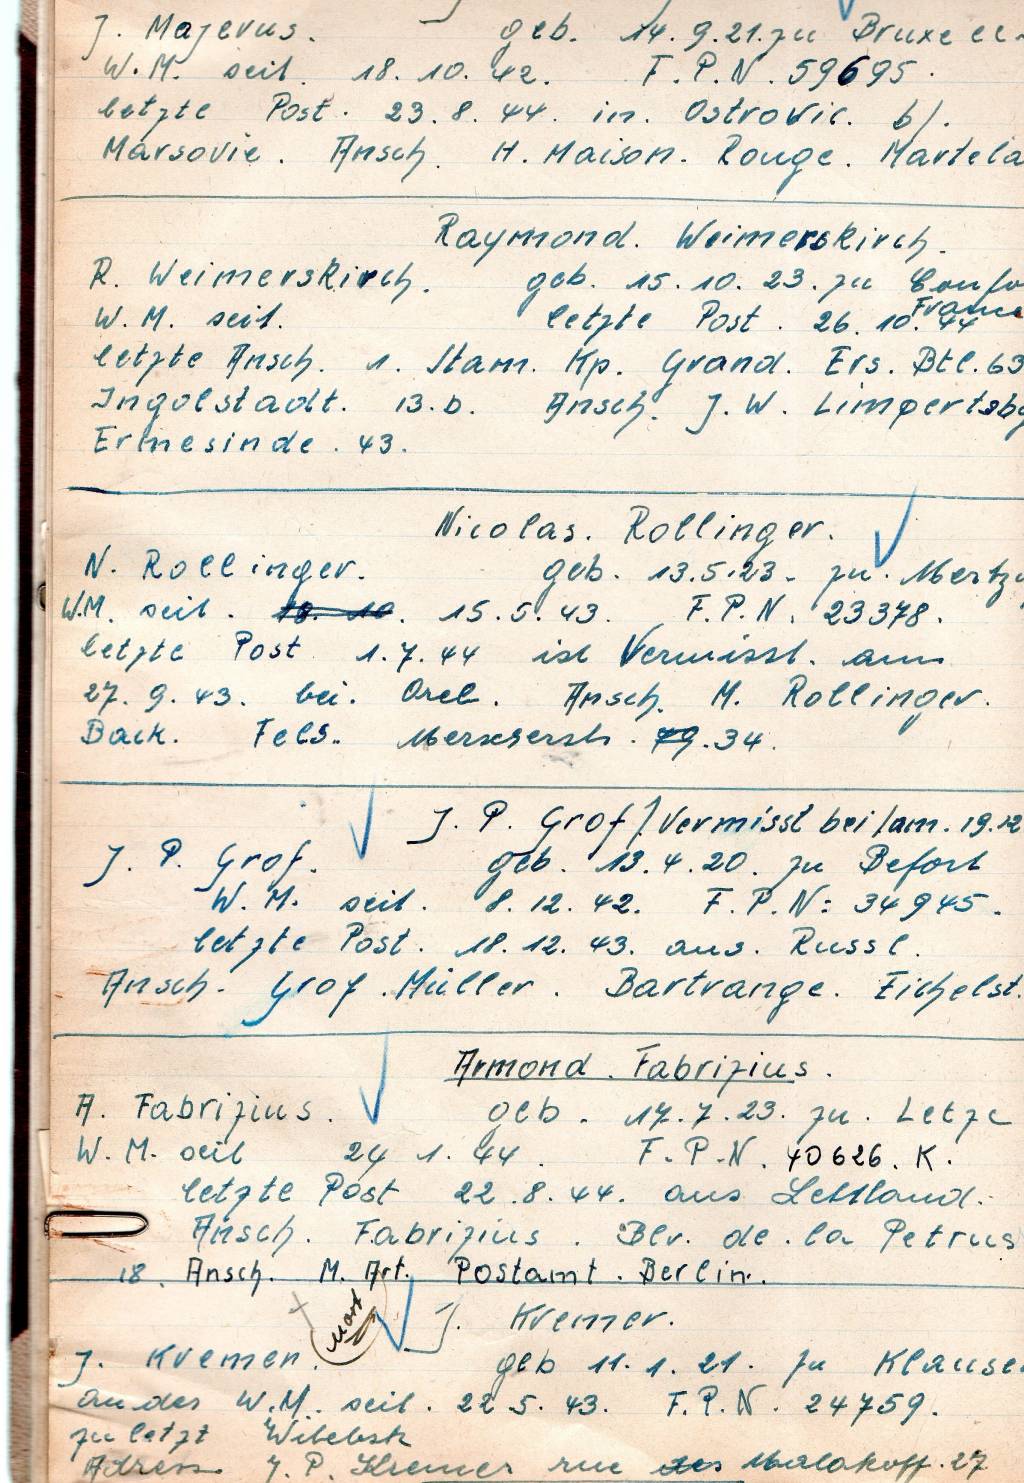 J. Majerus. geb. 14.9.21. zu Bruxell
W.M. seit. 18.10.42. F.P.N. 59695.
letzte Post. 23.8.44. in. Ostrovic. b/.
Marsovie. Ansch. H. Maison. Rouge. Martela
Raymond. Weimerskirch.
R. Weimerskirch. geb. 15.10.23. zu
France
W.M. seit. letzte Post. 26.10.44
letzte Ansch. 1. Stam. Kp. Grand. Ers. Btl. 63
Ingolstadt. 13.b. Ansch. J.W. Limpertsbg
Ermesinde. 43.
Nicolas. Rollinger.
N. Rollinger. geb. 13.5.23. zu. Mertzi
W.M. seit. 18. 10. 15.5.43. F.P.N. 23378.
letzte Post 1.7.44 ist Vermisst. am
27.9.43. bei. Orel. Ansch. M. Rollinger.
Back. Fels. 79.34.
J. P. Grof / Vermisst bei / am. 19.12
J. P. Grof. geb. 13.4.20. zu Befort
W.M. seit. 8.12.42. F.P.N: 34945.
letzte Post. 18.12.43. aus. Russl.
Ansch. Grof. Müller. Bartrange. Eichelst.
Armond. Fabrizius.
A. Fabrizius. geb. 17.7.23. zu. Letze
W.M. seit 24 1.44. F.P.N. 40626. K.
letzte Post 22.8.44. aus Lettland.
Ansch. Fabrizius. Blv. de. la Petrus
18. Ansch. M. Art. Postamt. Berlin.
mort
J. Kremer.
J. Kremer. geb 11.1.21. zu Klause
an des W.M. seit. 22.5.43. F.P.N. 24759.
zu letzt Witebsk
Adress J. P. Kremer rue des Malakoff. 27